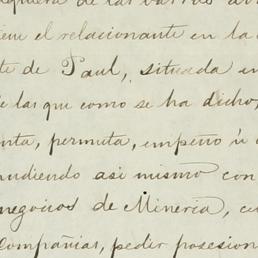 quiera de las barras
tiene el relacionante en la
te de Paul, situada en
de las que como se ha dicho,
nta, permuta, empeño ú
pudiendo asi mismo con
negocios de Mineria,
compañias, pedir posesion